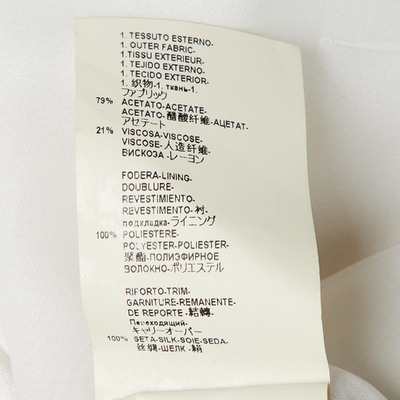 1. TESSUTO ESTERNO-
1. OUTER FABRIC-
1.TISSU EXTERIEUR-
1.TEJIDO EXTERNO-
1.TECIDO EXTERIOR-
1. 织物-1. ткань-1.
ファブリック
79% ACETATO-ACETATE-
ACETATO-醋酸纤维-АЦЕТАТ-
アセテート
21% VISCOSA-VISCOSE-
VISCOSE-人造纤维-
ВИСКОЗА-レーヨン
FODERA-LINING-
DOUBLURE-
REVESTIMIENTO-
REVESTIMENTO-衬-
подкладка-ライニング
100% POLIESTERE-
POLYESTER-POLIESTER-
聚酯-ПОЛИЭФИРНОЕ
ВОЛОКНО-ポリエステル
RIPORTO-TRIM-
GARNITURE-REMANENTE-
DE REPORTE-結轉-
Переходящий-
キャリーオーバー
100% SETA-SILK-SOIE-SEDA-
丝绸-ШЕЛК-絹